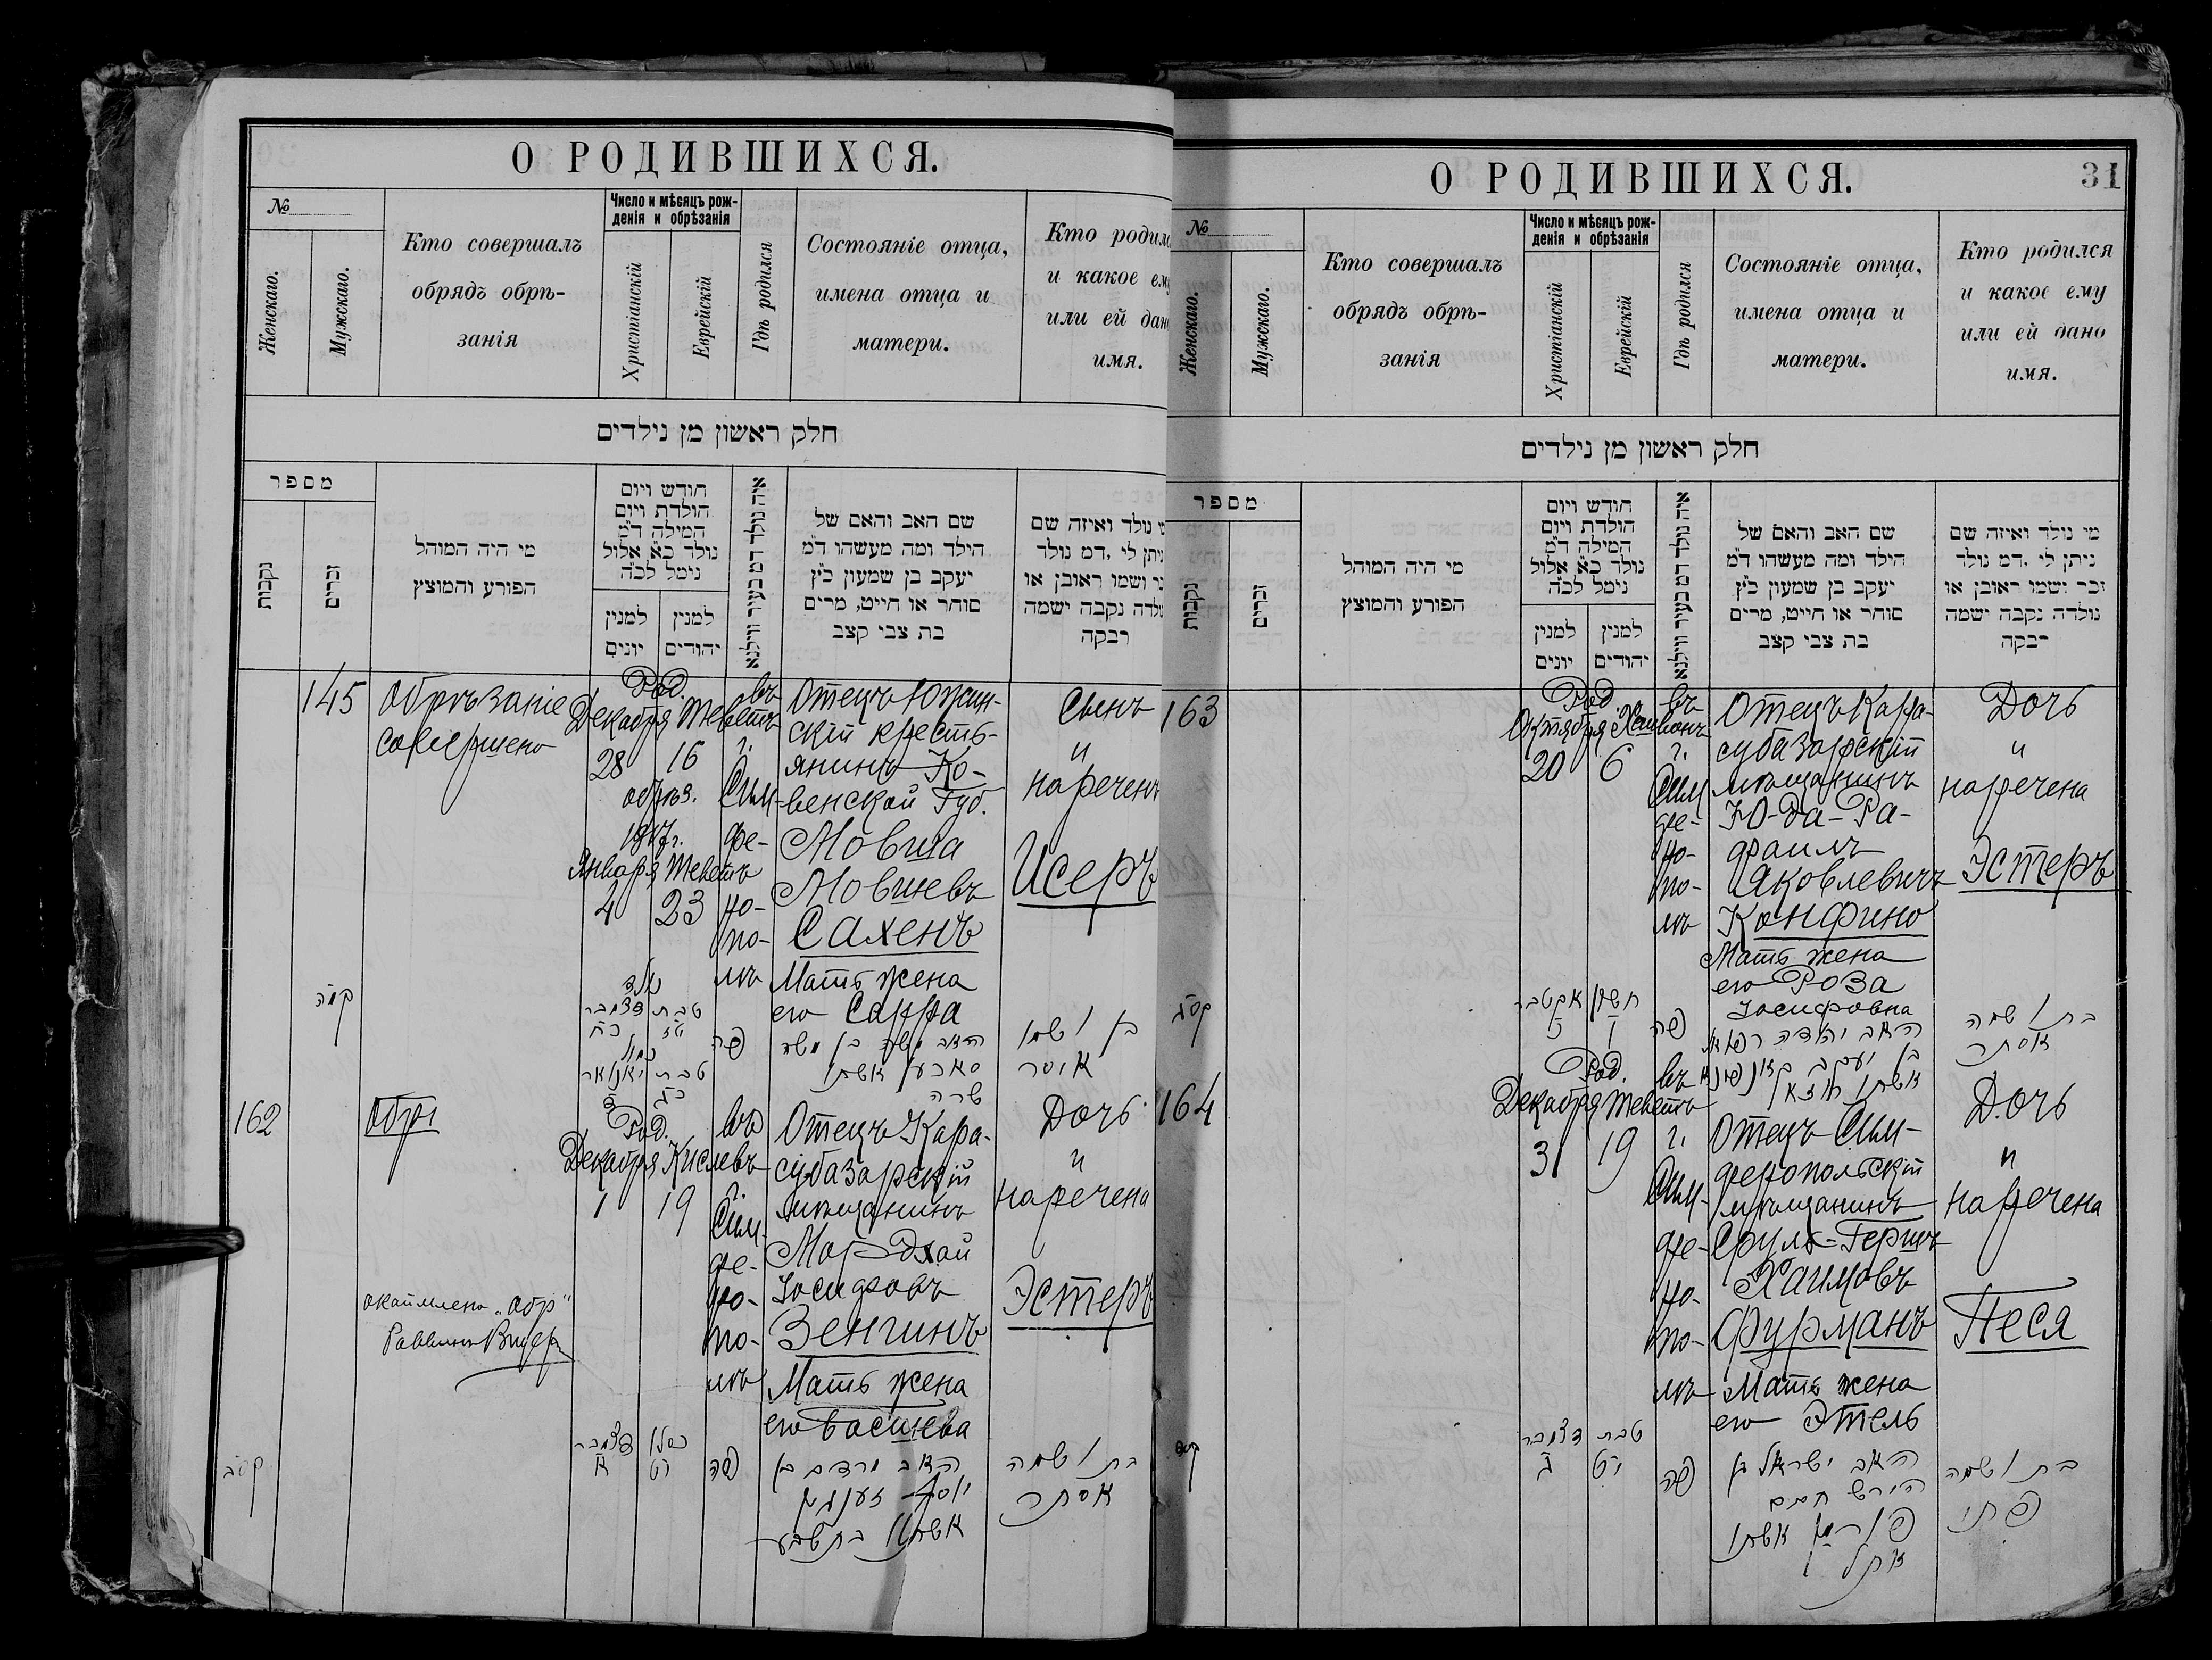 О РОДИВШИХСЯ.
№
Женскаго.
Мужскаго.
Кто совершалъ
обрядъ обрѣ-
занія
Число и мѣсяцъ рож-
денія и обрѣзанія
Христіанскій
Еврейскій
Гдѣ родился
Состояніе отца,
имена отца и
матери.
Кто родил
и какое ем
или ей дан
имя.
חלק ראשון מן נילדים
מספר
נקבות
זכרים
מי היה המוהל
הפורע והמוצץ
חודש ויום
הולדת ויום
המילה ד״מ
נולד כ״א אלול
נימל לכ״ה
למנין
יונים
למנין
יהודים
איה נולד דמ בעיר ווילנא
שם האב והאם של
הילד ומה מעשהו ד״מ
יעקב בן שמעון כ״ץ
סוחר או חייט, מרים
בת צבי קצב
י נולד ואיזה שם
יתן לי .דמ נולד
כר ושמו ראובן או
ולדה נקבה ישמה
רבקה
145
Обрѣзаніе
совершено
Род.
Декабря Теветъ
28 16
обрѣз.
1917г.
Января Теветъ
4 23
въ
г.
Сим-
фе-
ро-
по-
лѣ
Отецъ Южин-
скій кресть-
янинъ Ко-
венской Губ.
Мовша
Мовшевъ
Сахенъ
Мать жена
его Сарра
Сынъ
и
нареченъ
Исеръ
קמה
נולד
טבת דצמבר
טז כח
נמול
טבת יאנואר
כג ד
פה
האב משה בן משה
סאכען אשתו
שרה
בן ושמו
איסר
162
Обр
Род.
Декабря Кислевъ
1 19
въ
г.
Сим-
фе-
ро-
по-
лѣ
Отецъ Кара-
субазарскій
мѣщанинъ
Мордхай
Іосифовъ
Зенгинъ
Мать жена
его Васшева
Дочь
и
наречена
Эстеръ
окаймлено „Обр"
Раввинъ
קסב
כסלו דצמבר
יט א
פה
האב מרדכי בן
יוסף זענגין
אשתו בתשבע
בת ושמה
אסתר
О РОДИВШИХСЯ.
31
№
Женскаго.
Мужскаго.
Кто совершалъ
обрядъ обрѣ-
занія
Число и мѣсяцъ рож-
денія и обрѣзанія
Христіанскій
Еврейскій
Гдѣ родился
Состояніе отца,
имена отца и
матери.
Кто родился
и какое ему
или ей дано
имя.
חלק ראשון מן נילדים
מספר
נקבות
זכרים
מי היה המוהל
הפורע והמוצץ
חודש ויום
הולדת ויום
המילה ד״מ
נולד כ״א אלול
נימל לכ״ה
למנין
יונים
למנין
יהודים
איה נולד דמ בעיר ווילנא
שם האב והאם של
הילד ומה מעשהו ד״מ
יעקב בן שמעון כ״ץ
סוחר או חייט, מרים
בת צבי קצב
מי נולד ואיזה שם
ניתן לי .דמ נולד
זכר ישמו ראובן או
נולדה נקבה ישמה
רבקה
163
Род.
Октября Хешванъ
20 6
въ
г.
Сим
фе-
ро-
по-
лѣ
Отецъ Кара-
субазарскій
мѣщанинъ
Ю-да-Ра-
фаилъ
Яковлевичъ
Конфино
Мать жена
его Роза
Іосифовна
Дочь
и
наречена
Эстеръ
קסג
חשון אקטבר
ו כ
פה
האב יהודה רפאל
בן יעקב קאנפינא
אשתו ראזא
בת ושמה
אסתר
164
Род.
Декабря Теветъ
31 19
въ
г.
Сим-
фе-
ро-
по-
лѣ
Отецъ Сим-
феропольскій
мѣщанинъ
Сруль-Гершъ
Хаимовъ
Фурманъ
Мать жена
его Этель
Дочь
и
наречена
Песя
קסד
טבת דצמבר
יט
פה
האב ישראל
הירש חיים
פורמן אשתו
אתל
בת ושמה